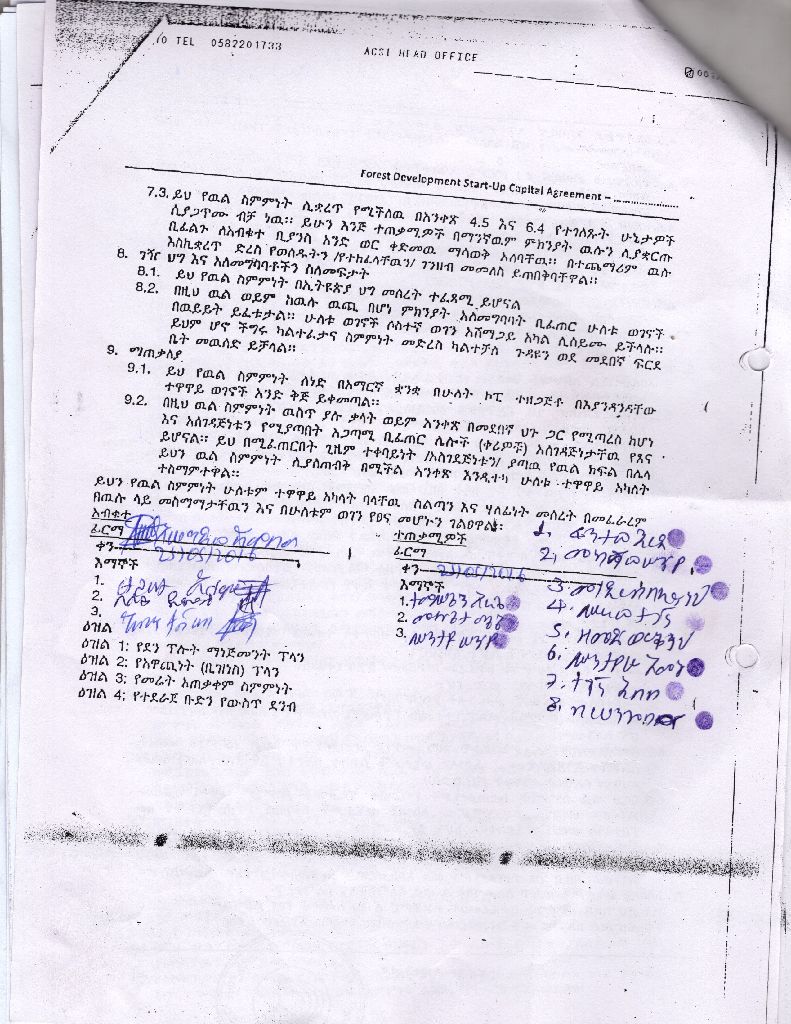 /0 TEL 0582201733 ACSI HEAD OFFICE
Forest Development Start-Up Capital Agreement –
7.3. ይህ የዉል ስምምነት ሊቋረጥ የሚችለዉ በአንቀጽ 4.5 እና 6.4 የተገለጹት ሁኔታዎች
ሲያጋጥሙ ብቻ ነዉ፡፡ ይሁን እንጅ ተጠቃሚዎች በማንኛዉም ምክንያት ዉሉን ሊያቋርጡ
ቢፈልጉ ለአብቁተ ቢያንስ አንድ ወር ቀድመዉ ማሳወቅ አለባቸዉ፡፡ በተጨማሪም ዉሉ
እስኪቋረጥ ድረስ የወሰዱትን /የተከፈላቸዉን/ ገንዘብ መመለስ ይጠበቅባቸዋል፡፡
8. ገዥ ህግ እና አለመግባባቶችን ስለመፍታት
8.1. ይህ የዉል ስምምነት በኢትዮጵያ ህግ መሰረት ተፈጻሚ ይሆናል
8.2. በዚህ ዉል ወይም ከዉሉ ዉጪ በሆነ ምክንያት አለመግባባት ቢፈጠር ሁለቱ ወገኖች
በዉይይት ይፈቱታል፡፡ ሁለቱ ወገኖች ሶስተኛ ወገን አሸማጋይ አካል ሊሰይሙ ይችላሉ፡፡
ይህም ሆኖ ችግሩ ካልተፈታና ስምምነት መድረስ ካልተቻለ ጉዳዩን ወደ መደበኛ ፍርደ
ቤት መዉሰድ ይቻላል፡፡
9. ማጠቃለያ
9.1. ይህ የዉል ስምምነት ሰነድ በአማርኛ ቋንቋ በሁለት ኮፒ ተዘጋጅቶ በእያንዳንዳቸው
ተዋዋይ ወገኖች አንድ ቅጅ ይቀመጣል፡፡
9.2. በዚህ ዉል ስምምነት ዉስጥ ያሉ ቃላት ወይም አንቀጽ በመደበኛ ህጉ ጋር የሚጣረስ ከሆነ
እና አስገዳጅነቱን የሚያጣበት አጋጣሚ ቢፈጠር ሌሎች (ቀሪዎች) አስገዳጅነታቸዉ የጸና
ይሆናል፡፡ ይህ በሚፈጠርበት ጊዜም ተቀባይነት /አስገደጅነቱን/ ያጣዉ የዉል ክፍል በሌላ
ይህን ዉል ስምምነት ሊያስጠብቅ በሚችል አንቀጽ እንዲተካ ሁለቱ ተዋዋይ አካለት
ተስማምተዋል፡፡
ይህን የዉል ስምምነት ሁለቱም ተዋዋይ አካላት ባላቸዉ ስልጣን እና ሃለፊነት መሰረት በመፈራረም
በዉሉ ላይ መስማማታቸዉን እና በሁለቱም ወገን የፀና መሆኑን ገልፀዋል፡
አብቁተ
ፊርማ
ቀን
እማኞች
1.
2.
3.
ተጠቃሚዎች
ፊርማ
ቀን
እማኞች
1.
2.
3.
1.
2.
3.
4.
5.
6.
7.
8.
ዕዝል
ዕዝል 1; የደን ፕሎት ማነጅመንት ፕላን
ዕዝል 2; የአዋጪነት (ቢዝነስ) ፕላን
ዕዝል 3; የመሬት አጠቃቀም ስምምነት
ዕዝል 4; የተደራጀ ቡድን የውስጥ ደንብ